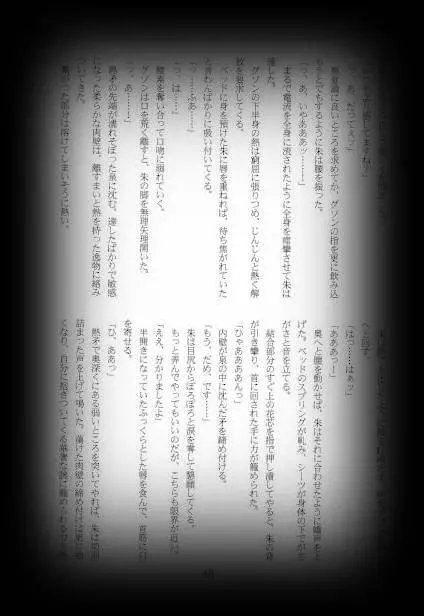 感じてますね？」
あ、だってぇッ」
無意識に良いところを求めてか、グソンの指を更に飲み込
もうとでもするように朱は腰を振った。
「あ、あ、いやあああッ………！」
まるで電流を全身に流されたように全身を痙攣させて朱は
達した。
グソンの下半身の熱は窮屈に張りつめ、じんじんと熱く解
放を要求してくる。
ベッドに身を預けた朱に唇を重ねれば、待ち焦がれていた
と言わんばかりに吸い付いてくる。
「っ……ふ…あ……」
「っ、は……」
酸素を奪い合って口吻に溺れていく。
グソンは口を荒く離すと、朱の脚を無理矢理開いた。
「っ、あ……」
熱矛の先端が濡れそぼった泉に沈む。達したばかりで敏感
になった柔らかな肉壁は、離すまいと熱を持った逸物に絡み
ついてきた。
繋がった部分は溶けてしまいそうに熱い。
へと回す。
「はっ……はぁッ」
「あああっ！」
奥へと腰を動かせば、朱はそれに合わせたように嬌声を上
げた。ベッドのスプリングが軋み、シーツが身体の下でがさ
がさと音を立てる。
結合部分のすぐ上の花芯を指で押し潰してやると、朱の背
が引き攣り、首に回された手に力が籠められた。
「ひゃああああんっ」
内壁が泉の中に沈んだ矛を締め付ける。
「もう、だめ、です……」
朱は目尻からぽろぽろと涙を零して懇願してくる。
もっと弄んでやってもいいのだが、こちらも限界が近い。
「ええ、分かりましたよ」
半開きになっていたふっくらとした唇を食んで、首筋に口
を寄せる。
「ひ、ああっ」
熱矛で奥深くにある弱いところを突いてやれば、朱は
詰まった声を上げて鳴いた。蕩けた肉壁の締め付けは更に
くなり、自分に抱きついてくる華奢な腕に籠め